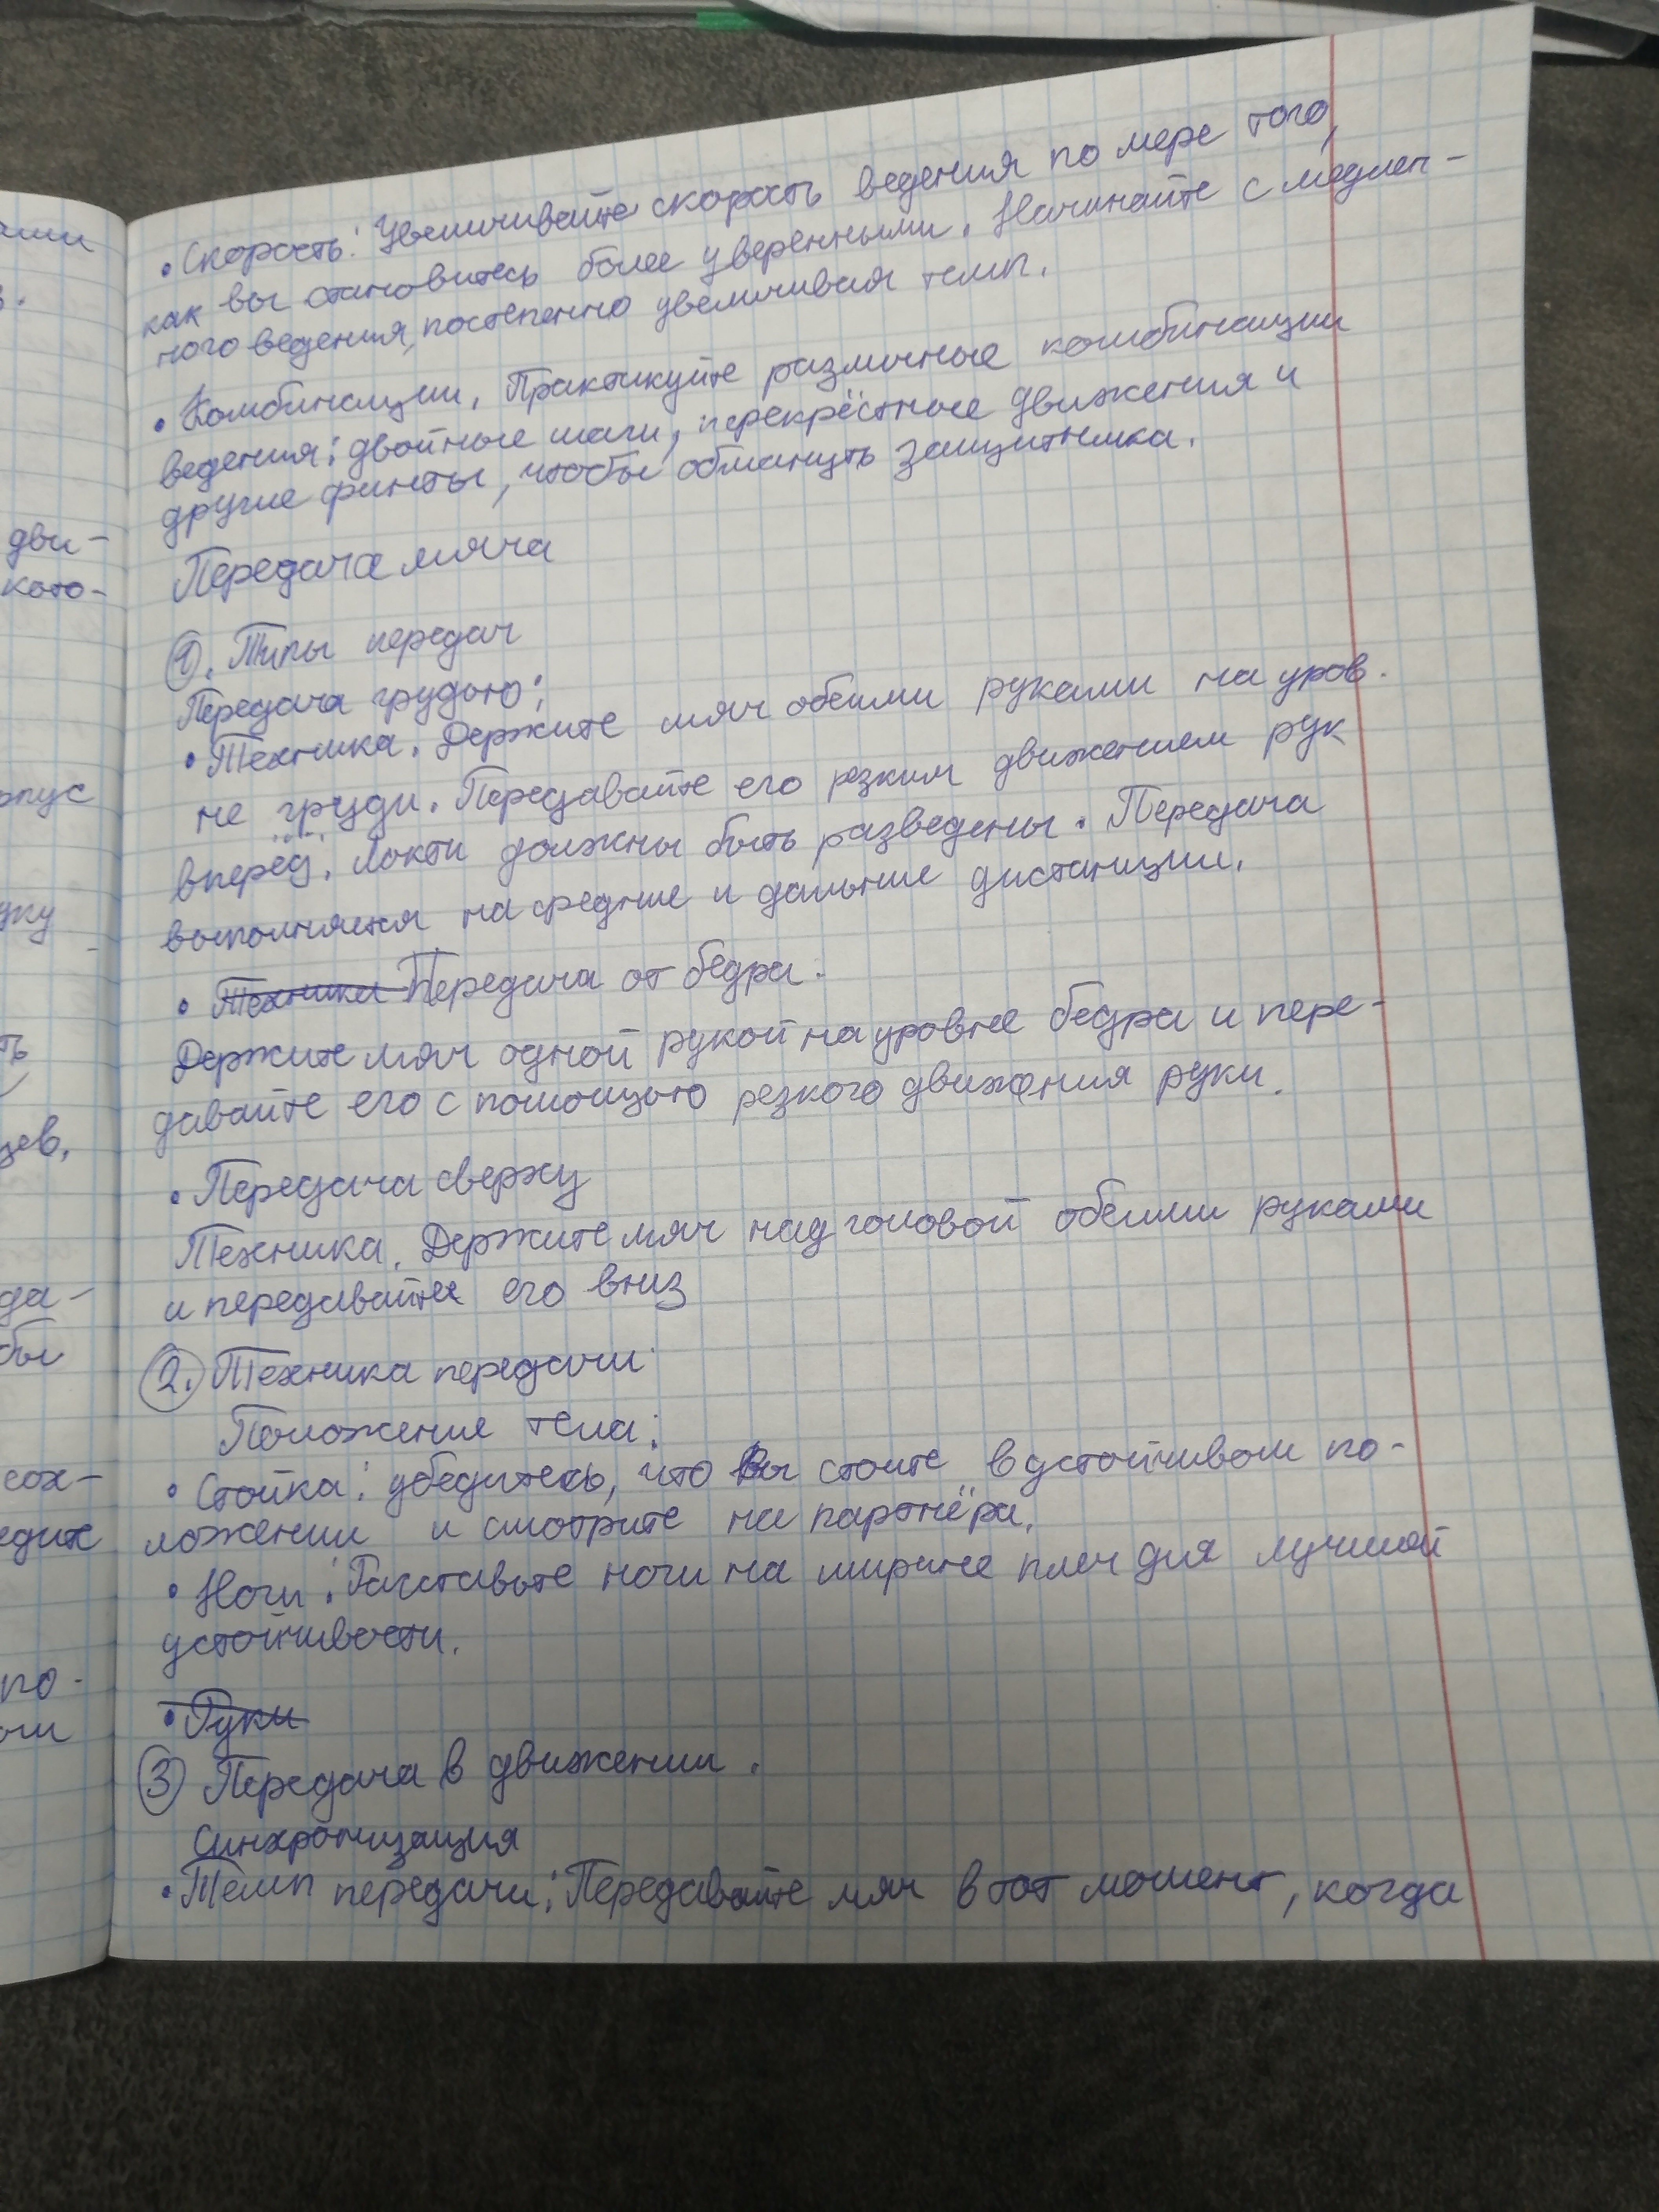 • Скорость: Увеличивайте скорость ведения по мере того,
как вы становитесь более уверенными. Начинайте с медлен-
ного ведения, постепенно увеличивая темп.
• Комбинации. Практикуйте различные комбинации
ведения: двойные шаги, перекрёстные движения и
другие финты, чтобы обмануть защитника.
Передача мяча
1. Типы передач
Передача грудью:
• Техника. Держите мяч обеими руками на уров.
не груди. Передавайте его резким движением рук
вперёд. Локти должны быть разведены. Передача
выполняется на средние и дальние дистанции.
• Техника Передача от бедра.
Держите мяч одной рукой на уровне бедра и пере-
давайте его с помощью резкого движения руки.
• Передача сверху
Техника. Держите мяч над головой обеими руками
и передавайте его вниз
2. Техника передачи
Положение тела:
• Стойка: убедитесь, что Вы стоите в устойчивом по-
ложении и смотрите на партнёра.
• Ноги: Расставьте ноги на ширине плеч для лучшей
устойчивости.
• Руки
3 Передача в движении.
Синхронизация
• Темп передачи: Передавайте мяч в тот момент, когда
дви-
кото-
рпус
ть
цев,
да-
бы
сох-
едите
по-